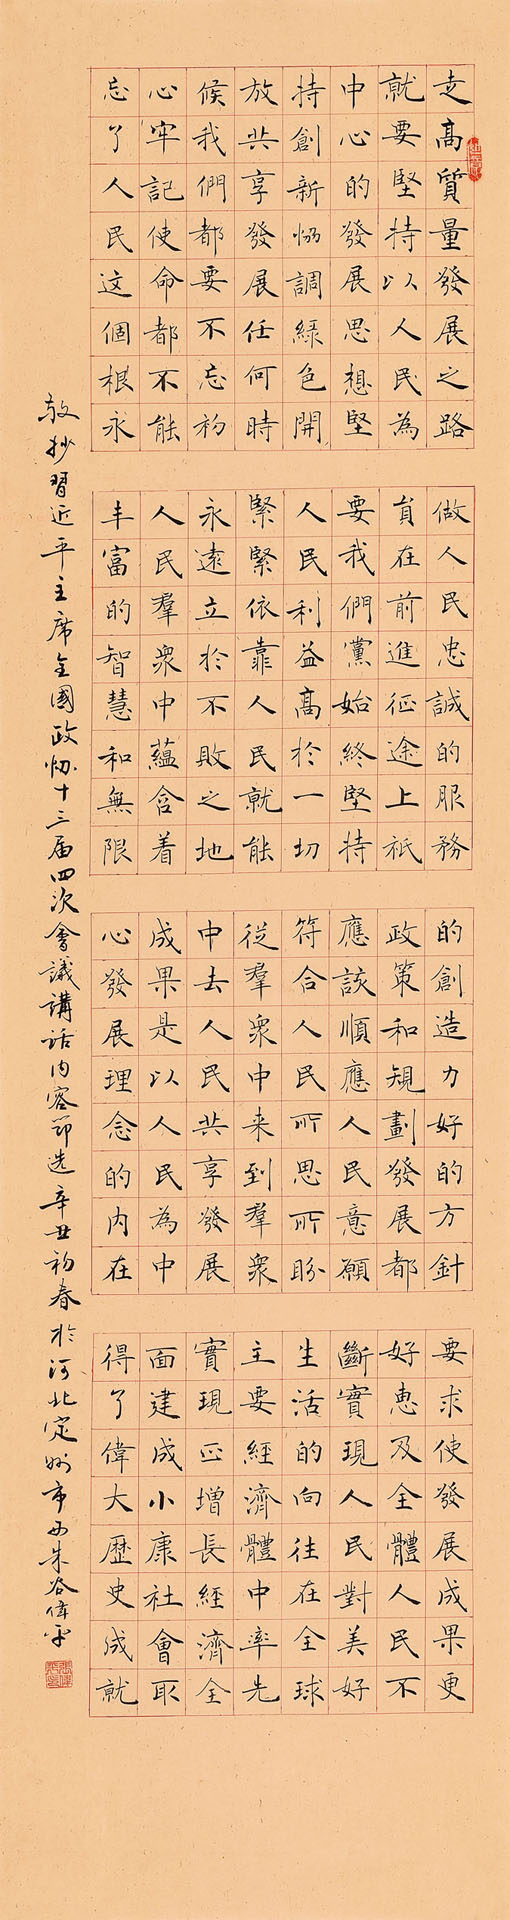 走高質量發展之路
就要堅持以人民為
中心的發展思想堅
持創新協調綠色開
放共享發展任何時
候我們都要不忘初
心牢記使命都不能
忘了人民这個根永
做人民忠誠的服務
員在前進征途上祇
要我們黨始終堅持
人民利益高於一切
緊緊依靠人民就能
永遠立於不敗之地
人民羣衆中蘊含着
丰富的智慧和無限
的創造力好的方針
政策和規劃發展都
應該順應人民意願
符合人民所思所盼
從羣衆中来到羣衆
中去人民共享發展
成果是以人民為中
心發展理念的内在
要求使發展成果更
好惠及全體人民不
斷實現人民對美好
生活的向往在全球
主要經濟體中率先
實現正增長經濟全
面建成小康社會取
得了偉大歷史成就
敬抄習近平主席全國政協十三届四次會議講話内容節选辛丑初春於河北定州市西朱谷偉平